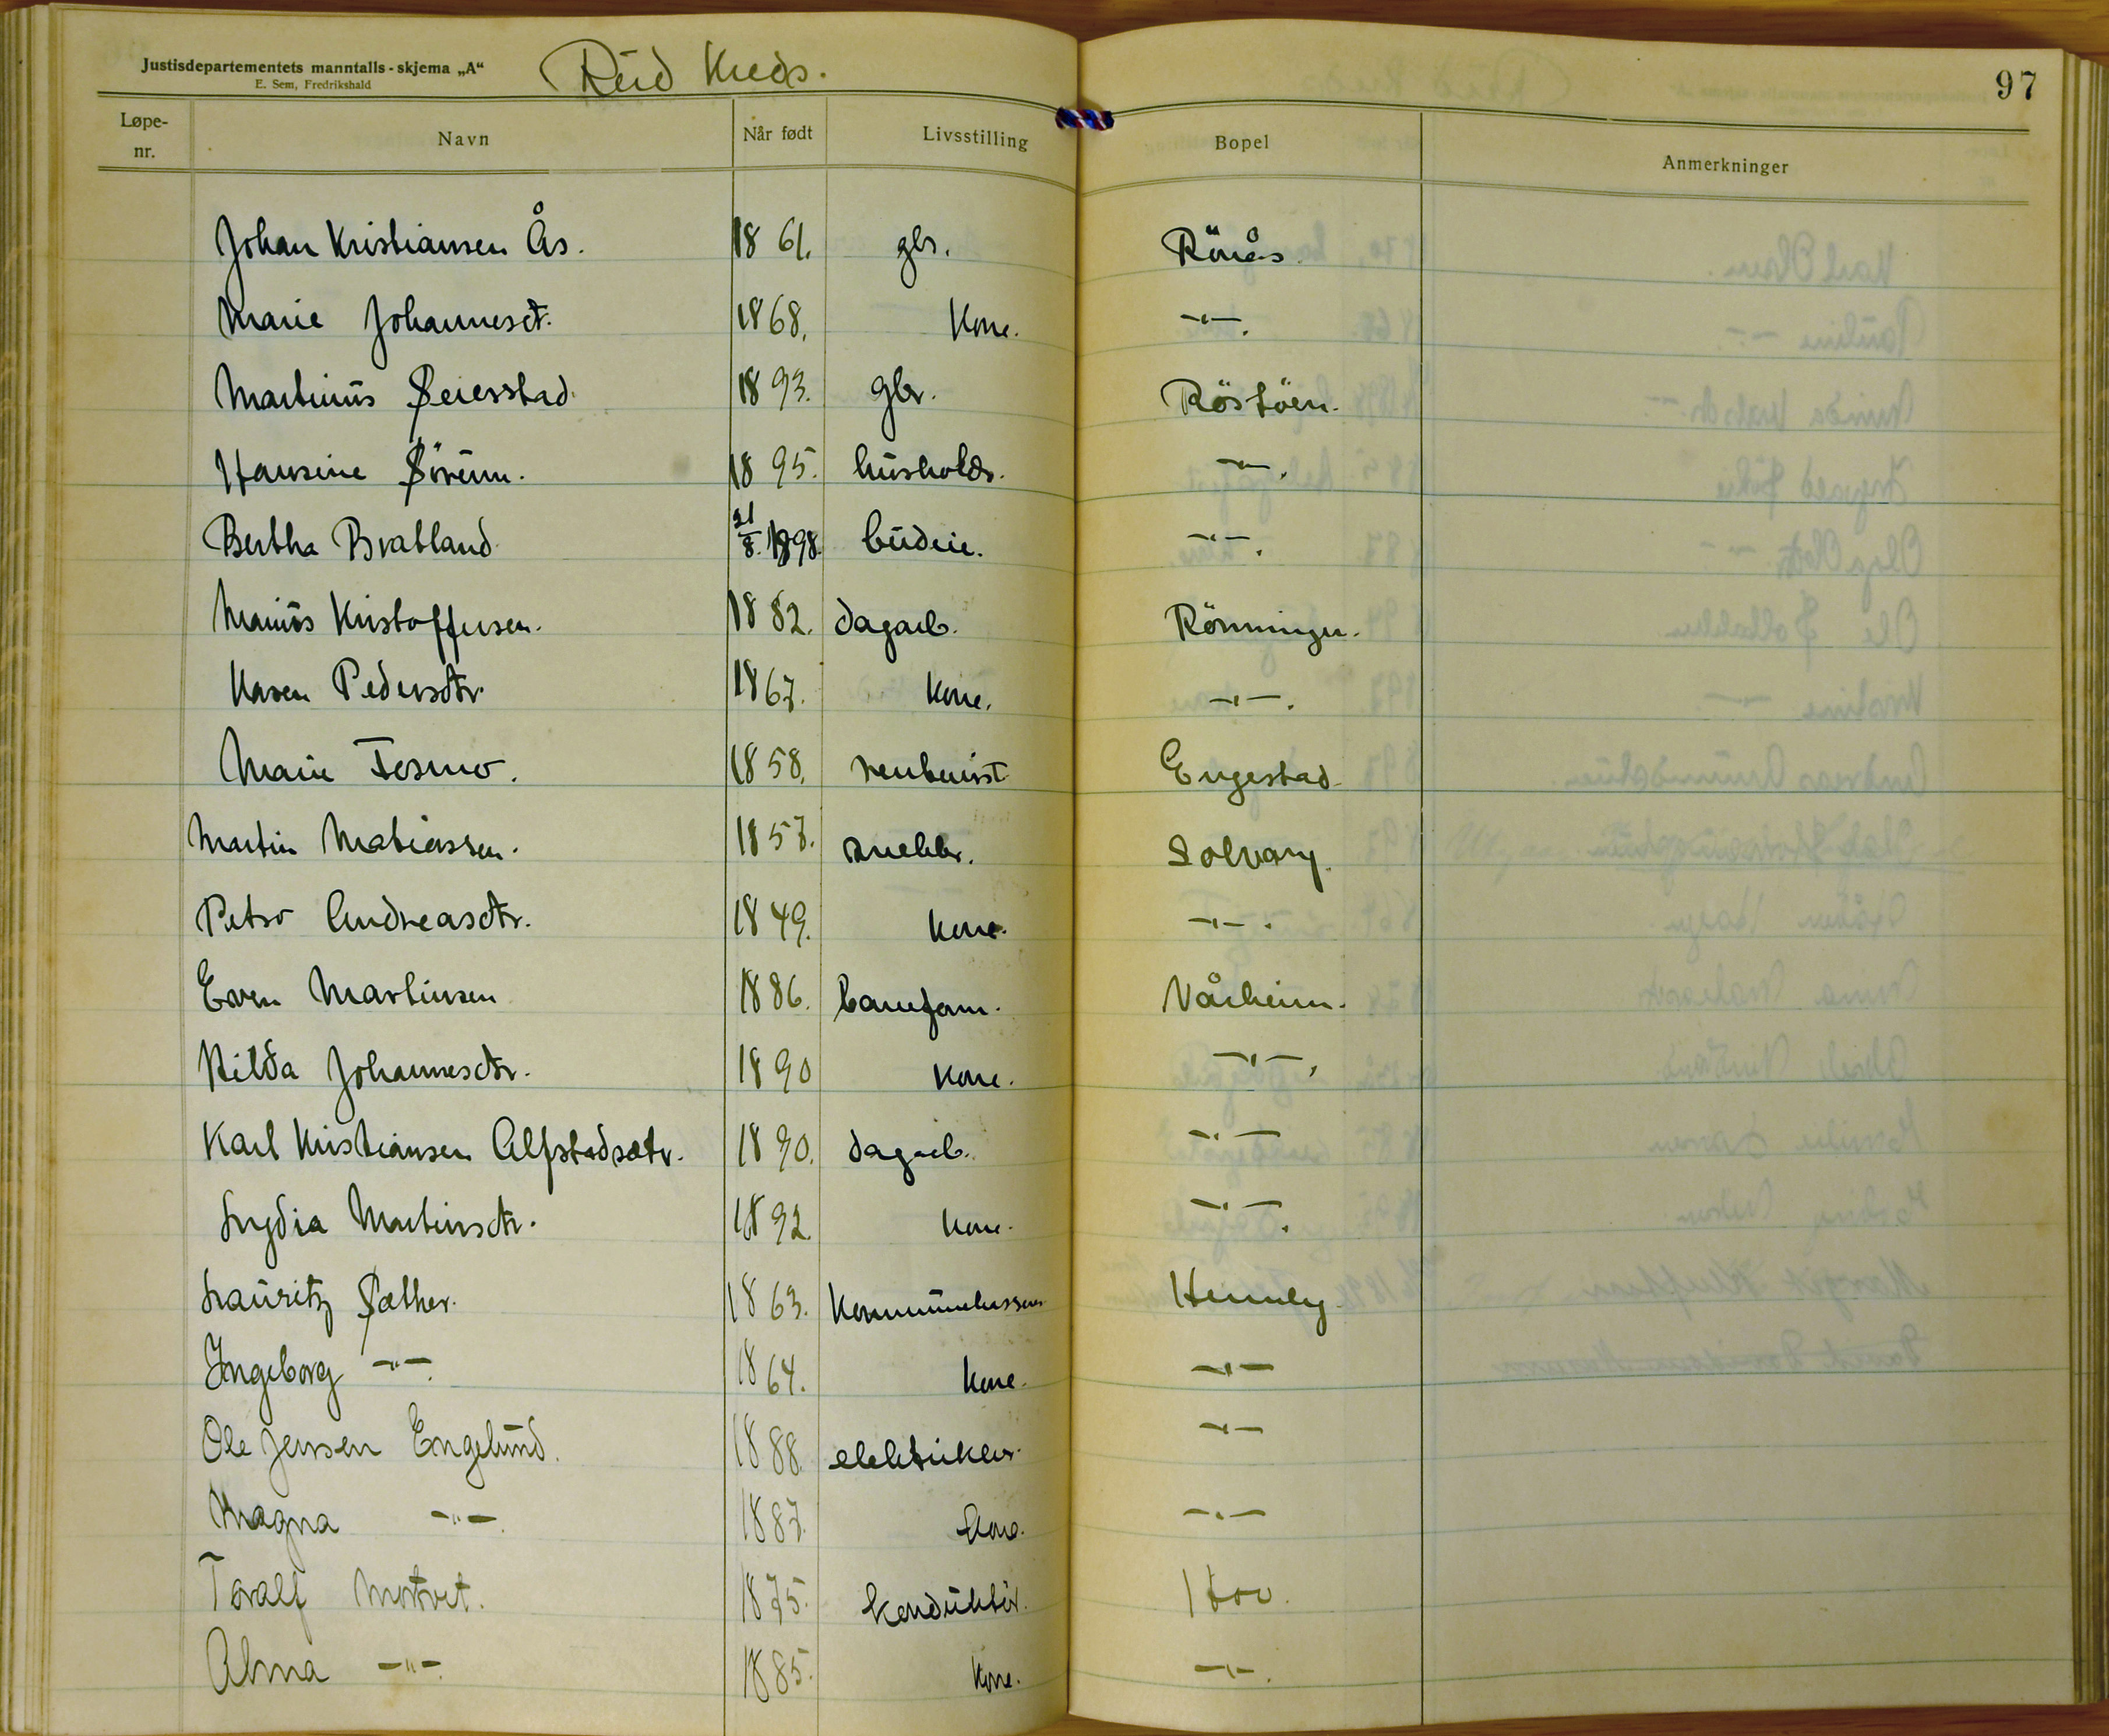 Justisdepartementets manntalls-skjema „A"
E. Sem, Fredrikshald
Rud Kreds.
97
Løpe-nr. Navn Når født Livsstilling Bopel Anmerkninger
Johan Kristiansen Ås. 1861. gbr. Rönås.
Marie Johannesdt. 1868. Kone. -"-.
Martinus Seierstad 1893. gbr. Röstöen.
Hansine Sörum. 1895. husholdr. -"-.
Bertha Bratland 21/8. 1898. budeie. -"-.
Marius Kristoffersen. 1882. dagarb. Rönningen.
Karen Pedersdtr. 1867. Kone. -"-.
Marie Fosmo. 1858. rentenist Engestad
Martin Matiassen. 1857. snekker. Solvang.
Petro Andreasdtr. 1849. Kone. -"-.
Even Martinsen 1886. baneform. Vårheim.
Hilda Johannesdtr. 1890 Kone. -"-.
Karl Kristiansen Alfstadsætr. 1890. dagarb. -"-
Lydia Martinsdtr. 1892. Kone. -"-.
Lauritz Sæther. 1863. Kommunekasserer
Ingeborg -"-. 1864. Kone. -"-
Ole Jensen Engelund. 1888. elektriker. -"-
Magna -"-. 1887. Kone. -"-
Toralf Mortvet. 1875. konduktör.
Alma -"-. 1885. Kone. -"-.